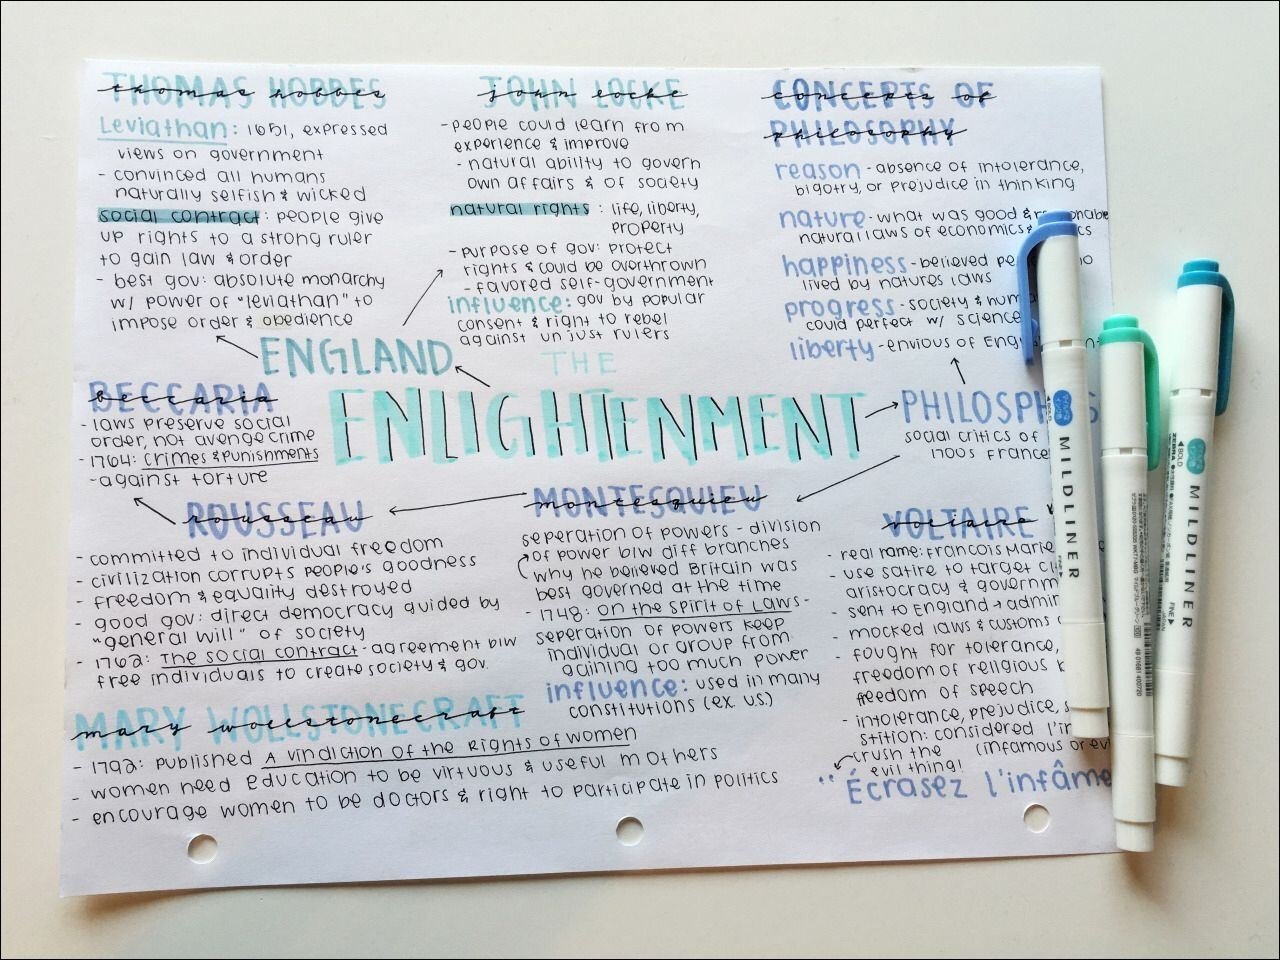 THOMAS HOBBES
thomas hobbes
Leviathan: 1651, expressed
views on government
- convinced all humans
naturally selfish & wicked
social contract: people give
up rights to a strong ruler
to gain law & order
- best gov: absolute monarchy
w/ power of "leviathan" to
impose order & obedience
JOHN LOCKE
john locke
- people could learn from
experience & improve
- natural ability to govern
own affairs & of society
natural rights : life, liberty,
property
- purpose of gov: protect
rights & could be overthrown
- favored self-government
influence: gov by popular
consent & right to rebel
against unjust rulers
CONCEPTS OF
concepts of
PHILOSOPHY
philosophy
reason - absence of intolerance,
bigotry, or prejudice in thinking
nature - what was good &
natural laws of economics &
happiness - believed
lived by natures laws
progress - society &
could perfect w/ science
liberty - envious of
ENGLAND
THE
ENLIGHTENMENT
PHILOSPH
social critics of
1700s France
BECCARIA
beccaria
- laws preserve social
order, not avenge crime
- 1764: Crimes & Punishments
- against torture
ROUSSEAU
rousseau
- committed to individual freedom
- civilization corrupts people's goodness
- freedom & equality destroyed
- good gov: direct democracy guided by
"general will" of society
- 1762: The Social Contract - agreement b/w
free individuals to create society & gov.
MONTESQUIEU
montesquieu
seperation of powers - division
of power b/w diff branches
why he believed Britain was
best governed at the time
- 1748: On the Spirit of Laws -
seperation of powers keep
individual or group from
gaining too much power
influence: used in many
constitutions (ex. u.s.)
VOLTAIRE
voltaire
- real name: Francois Marie
- use satire to target
aristocracy &
- sent to England →
- mocked laws & customs
- fought for tolerance,
freedom of religious
freedom of speech
- intolerance, prejudice,
stition: considered
crush the (infamous or
evil thing!
" Écrasez l'infâme
MARY WOLLSTONECRAFT
mary wollstonecraft
- 1792: published A Vindiction of the Rights of Women
- women need education to be virtuous & useful mothers
- encourage women to be doctors & right to participate in politics
MILDLINER
BOLD
ZEBRA
MILDLINER
FINE
JAPAN